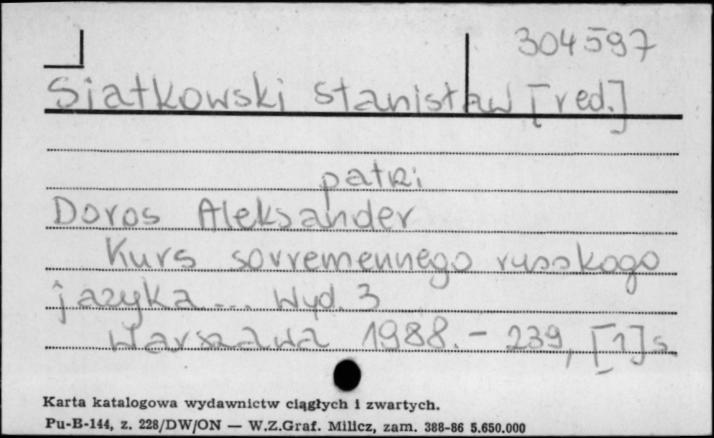 304597
Siatkowski Stanisław [red.]
patrz
Doros Aleksander
Kurs sovremennego russkogo
jazyka... Wyd. 3
Warszawa 1988. - 239, [1] s.
Karta katalogowa wydawnictw ciągłych i zwartych.
Pu-B-144, z. 228/DW/ON — W.Z.Graf. Milicz, zam. 388-86 5.650.000